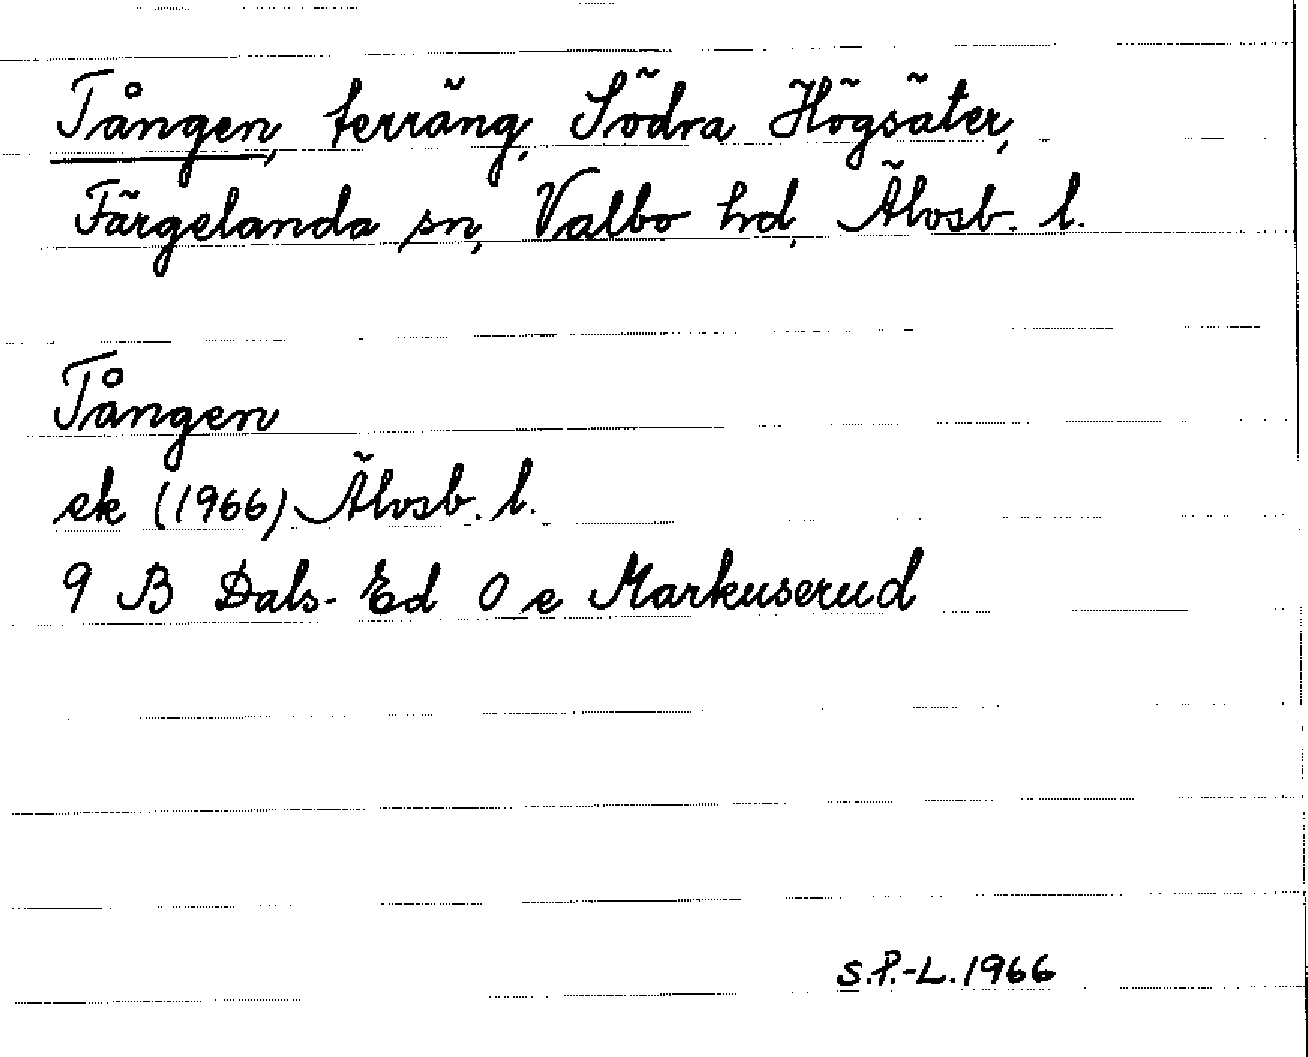 Tången, terräng, Södra Högsäter,
Färgelanda sn, Valbo hd, Älvsb. l.
Tången
ek (1966) Älvsb. l.
9 B Dals-Ed 0 e Markuserud
S.P.-L. 1966